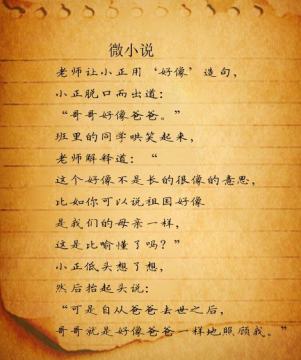 微小说
老师让小正用‘好像’造句，
小正脱口而出道：
“哥哥好像爸爸。”
班里的同学哄笑起来，
老师解释道：“
这个好像不是长的很像的意思，
比如你可以说祖国好像
是我们的母亲一样，
这是比喻懂了吗？”
小正低头想了想，
然后抬起头说：
“可是自从爸爸去世之后，
哥哥就是好像爸爸一样地照顾我。”